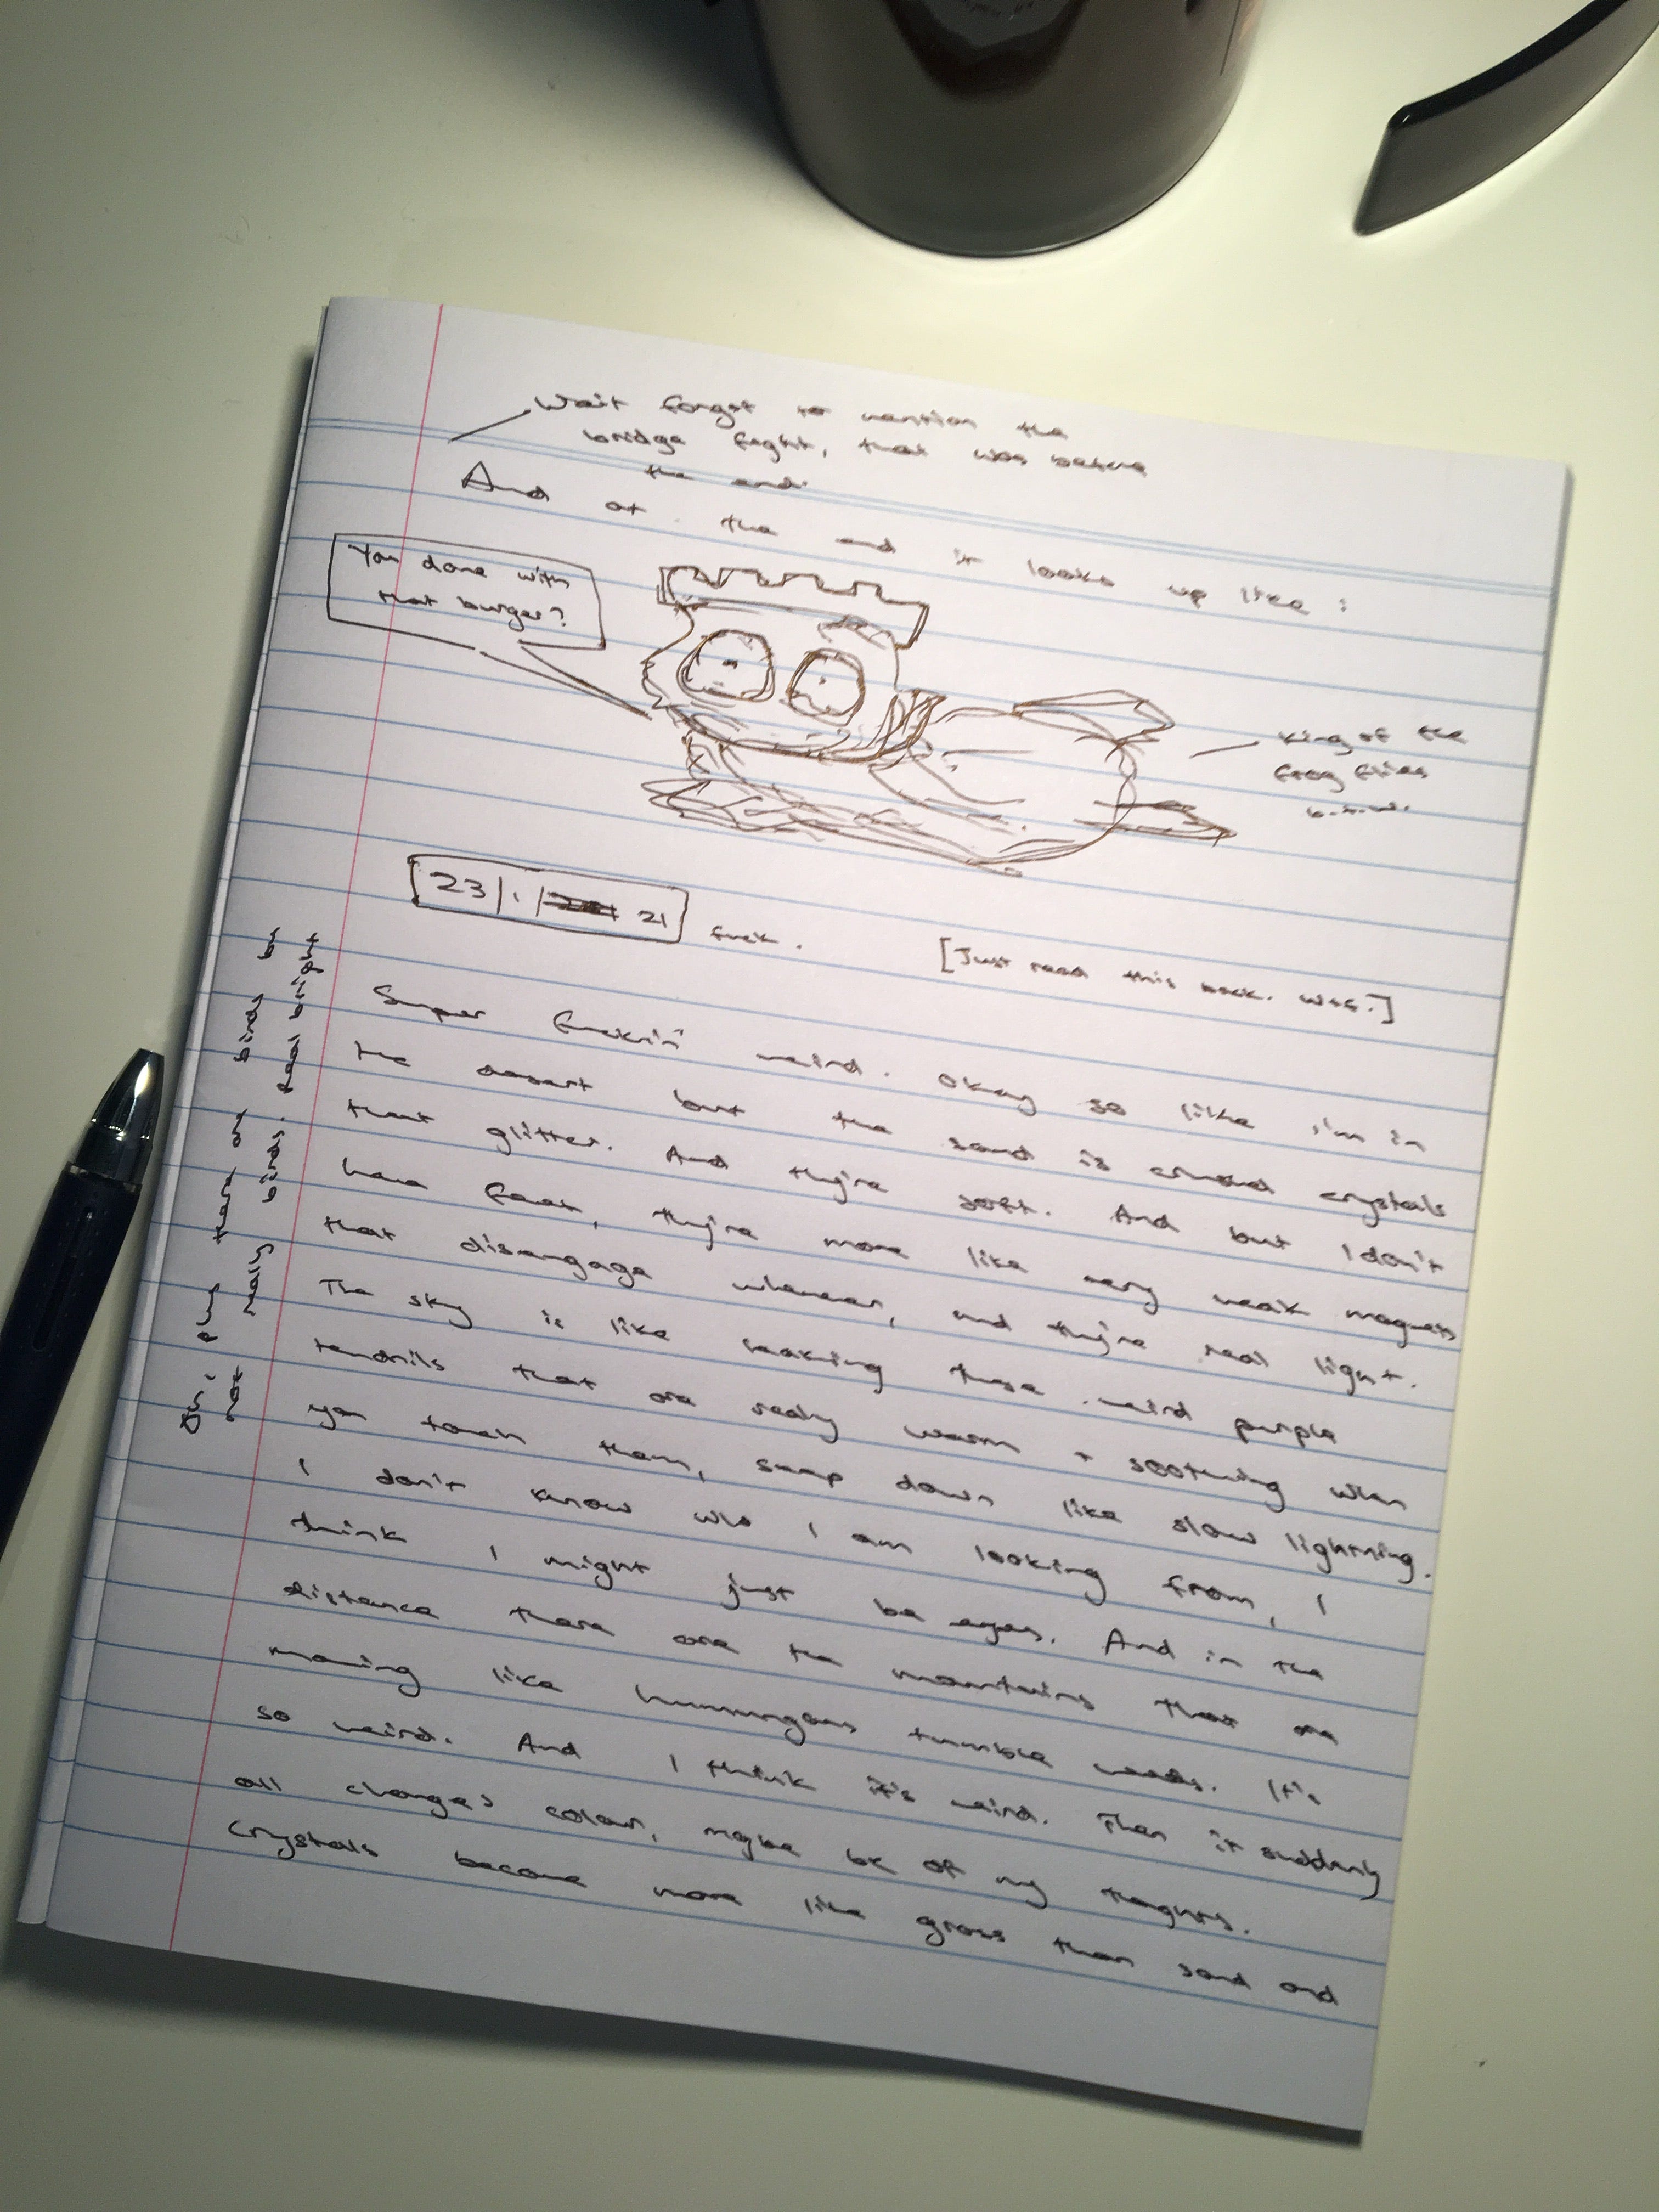 Wait forgot to mention the
bridge fight, that was before
the end.
And at the end it looks up like :
You done with
that burger?
King of the
frog flies
b.t.w.
23/1/ 21
fuck.
[Just read this back. Wtf.]
Super fuckin' weird. Okay so like I'm in
the desert but the sand is crushed crystals
that glitter. And they're soft. And but I don't
have feet, they're more like very weak magnets
that disengage whenever, and they're real light.
The sky is like leaking these weird purple
tendrils that are really warm + soothing when
you touch them, seep down like slow lightning.
I don't know who I am looking from, I
think I might just be eyes. And in the
distance there are the mountains that are
moving like humungous tumble weeds. It's
so weird. And I think it's weird. Then it suddenly
all changes colour, maybe bc of my thoughts.
Crystals become more like grass than sand and
Oh, plus there are birds but
not really birds. Real bright